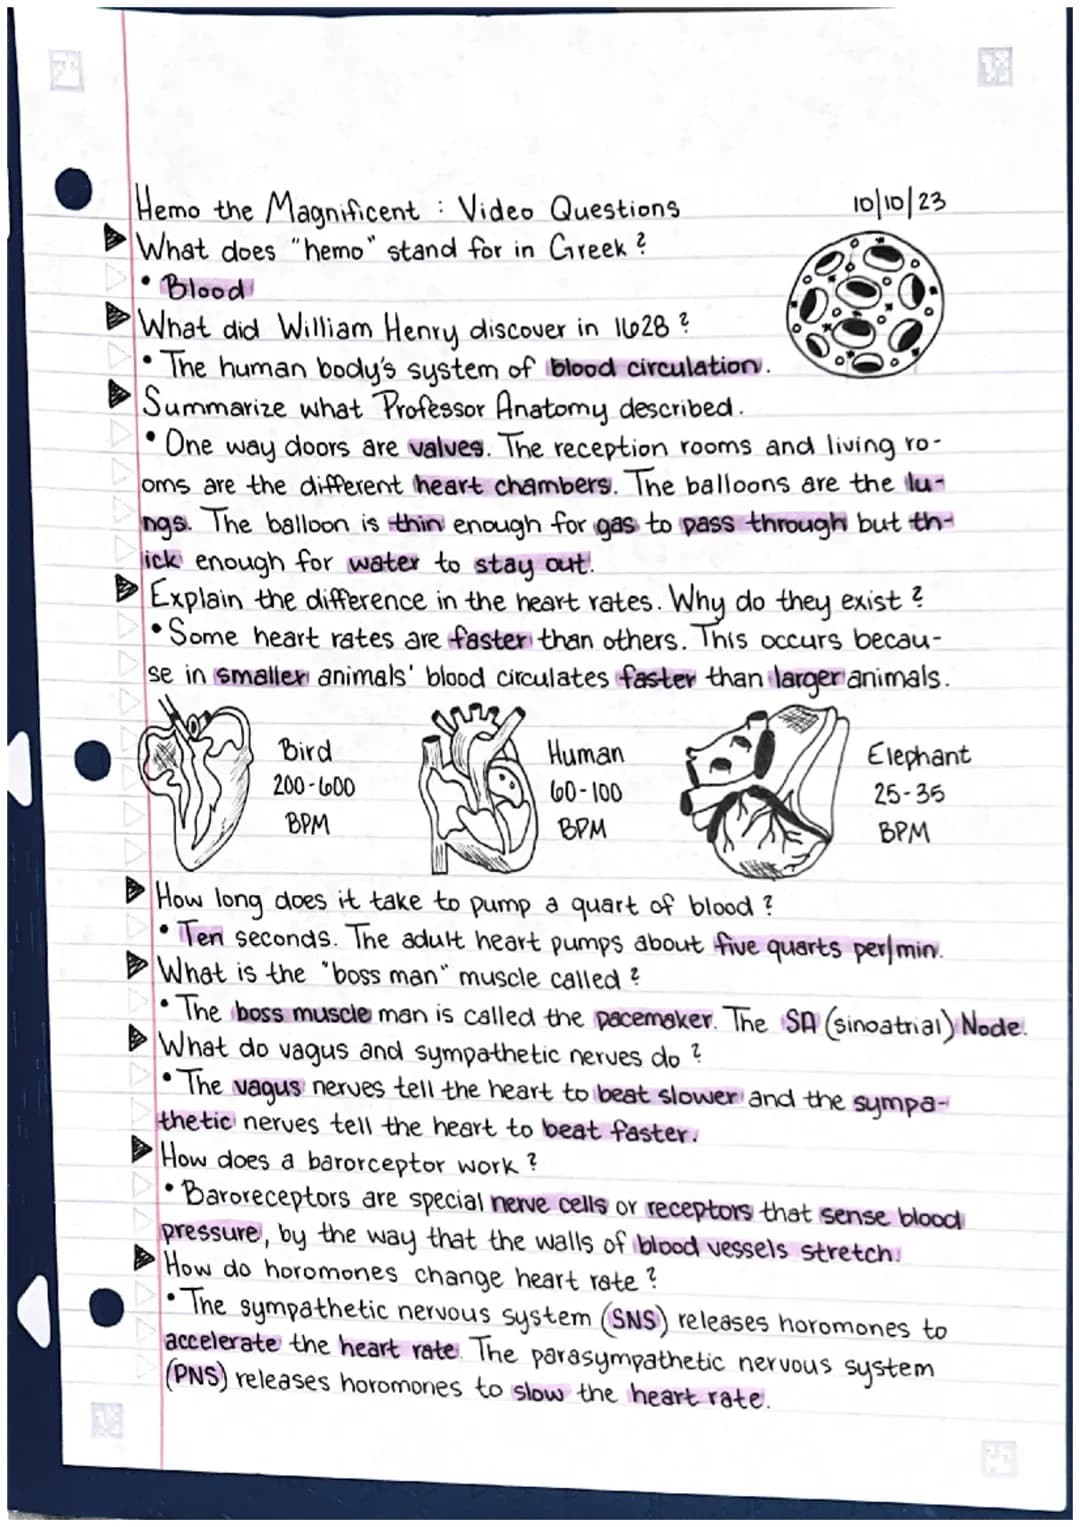 Hemo the Magnificent : Video Questions 10/10/23
What does "hemo" stand for in Greek ?
• Blood
What did William Henry discover in 1628 ?
• The human body's system of blood circulation.
Summarize what Professor Anatomy described.
• One way doors are valves. The reception rooms and living ro-
oms are the different heart chambers. The balloons are the lu-
ngs. The balloon is thin enough for gas to pass through but th-
ick enough for water to stay out.
Explain the difference in the heart rates. Why do they exist ?
• Some heart rates are faster than others. This occurs becau-
se in smaller animals' blood circulates faster than larger animals.
Bird
200-600
BPM
Human
60-100
BPM
Elephant
25-35
BPM
How long does it take to pump a quart of blood ?
• Ten seconds. The adult heart pumps about five quarts per/min.
What is the "boss man" muscle called ?
• The boss muscle man is called the pacemaker. The SA (sinoatrial) Node.
What do vagus and sympathetic nerves do ?
• The vagus nerves tell the heart to beat slower and the sympa-
thetic nerves tell the heart to beat faster.
How does a barorceptor work ?
• Baroreceptors are special nerve cells or receptors that sense blood
pressure, by the way that the walls of blood vessels stretch.
How do horomones change heart rate ?
• The sympathetic nervous system (SNS) releases horomones to
accelerate the heart rate. The parasympathetic nervous system
(PNS) releases horomones to slow the heart rate.